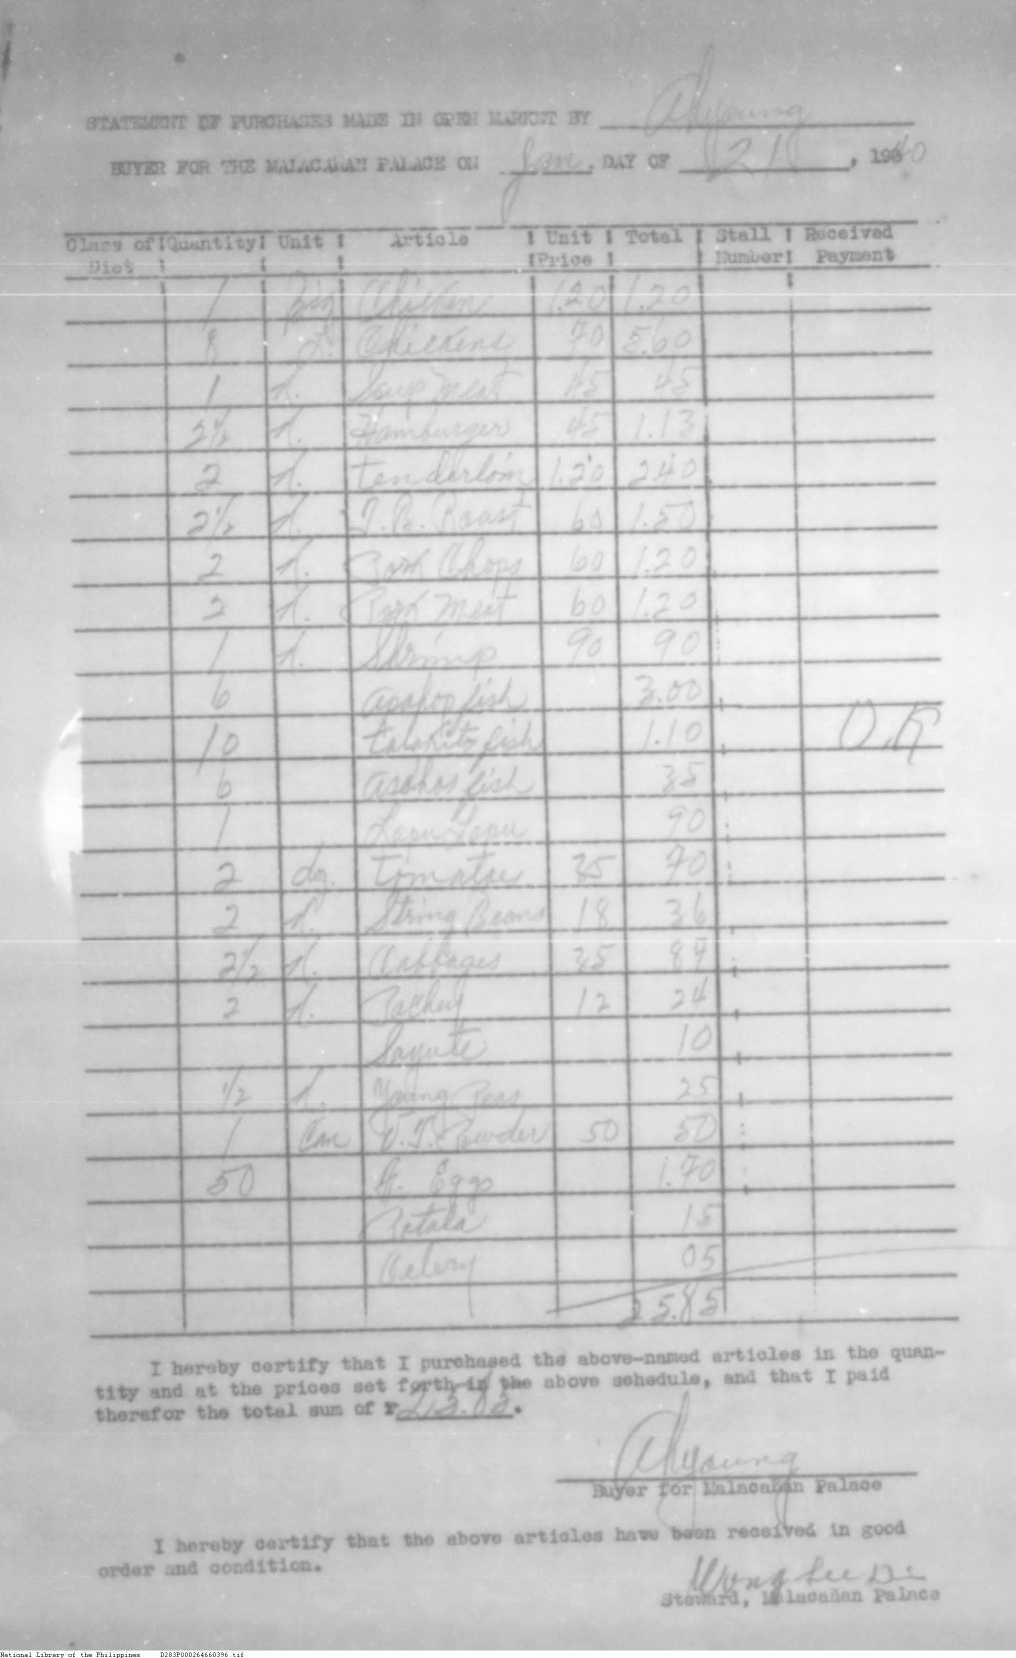 STATEMENT OF PURCHASES MADE IN OPEN MARKET BY Ahyoung
BUYER FOR THE MALACAÑAN PALACE ON Jan. DAY OF 21, 1940
Class of Dist | Quantity | Unit | Article | Unit Price | Total | Stall Number | Received Payment
1 Big Chicken 1.20 1.20
8 Chickens 70 5.60
1 k. Soup Meat 45 45
2½ k. Hamburgers 45 1.13
2 k. tenderloin 1.20 2.40
2½ k. Roast 60 1.50
2 k. Pork Chops 60 1.20
2 k. Pork Meat 60 1.20
1 k. Shrimp 90 90
6 fish 3.00
10 talakito fish 1.10 O.K
6 asohos fish 35
1 Lapu Lapu 90
2 dz. tomatoe 35 70
2 k. String Beans 18 36
2½ k. Cabbages 35 87
2 k. Pachey 12 24
Sayute 10
½ k. Young Peas 25
1 Can Powder 50 50
50 Eggs 1.70
15
Celery 05
25.85
I hereby certify that I purchased the above-named articles in the quan-
tity and at the prices set forth in the above schedule, and that I paid
therefor the total sum of ₱
Ahyoung
Buyer for Malacañan Palace
I hereby certify that the above articles have been received in good
order and condition.
Wong
Steward, Malacañan Palace
National Library of the Philippines D283P000264660396.tif